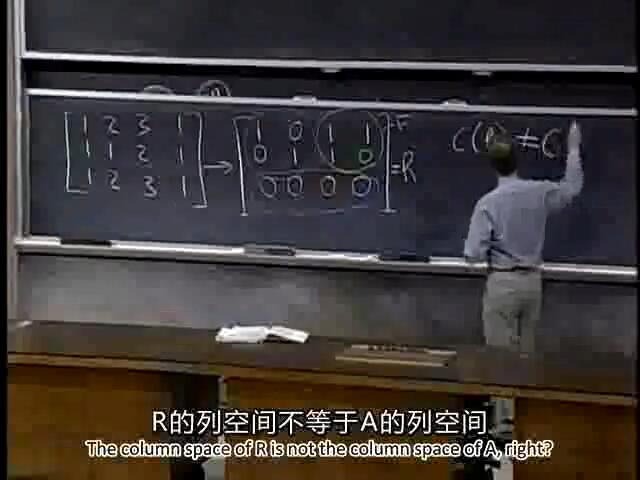 1 2 3 1 1 0 1 1 = F
1 1 2 1 → 0 1 1 0 = R
1 2 3 1 0 0 0 0
C(R) ≠ C
R的列空间不等于A的列空间
The column space of R is not the column space of A, right?